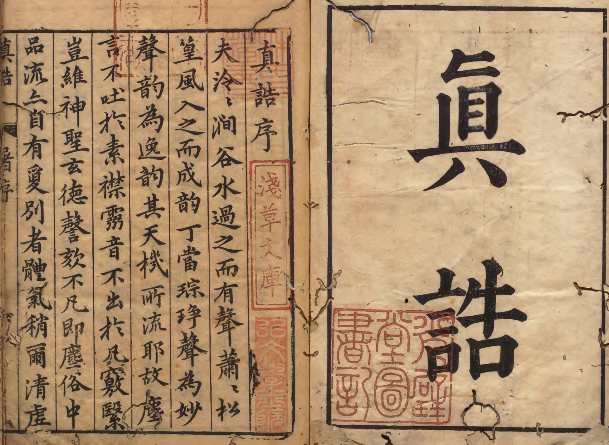 眞誥
堂圖
書記
真誥序
淺草文庫
夫泠〻澗谷水過之而有聲蕭〻松
篁風入之而成韵丁當琮琤聲為妙
聲韵為逸韵其天機所流耶故塵
言不吐於素襟霧音不出於凡竅繄
豈維神聖玄德謦欬不凡即塵俗中
品流亦自有夐別者體氣稍爾清虛
真誥